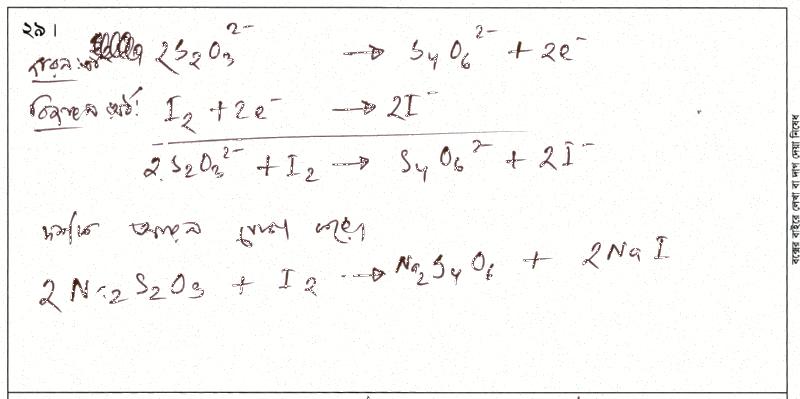 ২৯।
জারণ অর্ধ: 2S₂O₃²⁻ → S₄O₆²⁻ + 2e⁻
বিজারণ অর্ধ: I₂ + 2e⁻ → 2I⁻
2S₂O₃²⁻ + I₂ → S₄O₆²⁻ + 2I⁻
দর্শক আয়ন যোগ করে।
2Na₂S₂O₃ + I₂ → Na₂S₄O₆ + 2NaI
বক্সের বাইরে লেখা বা দাগ দেয়া নিষেধ